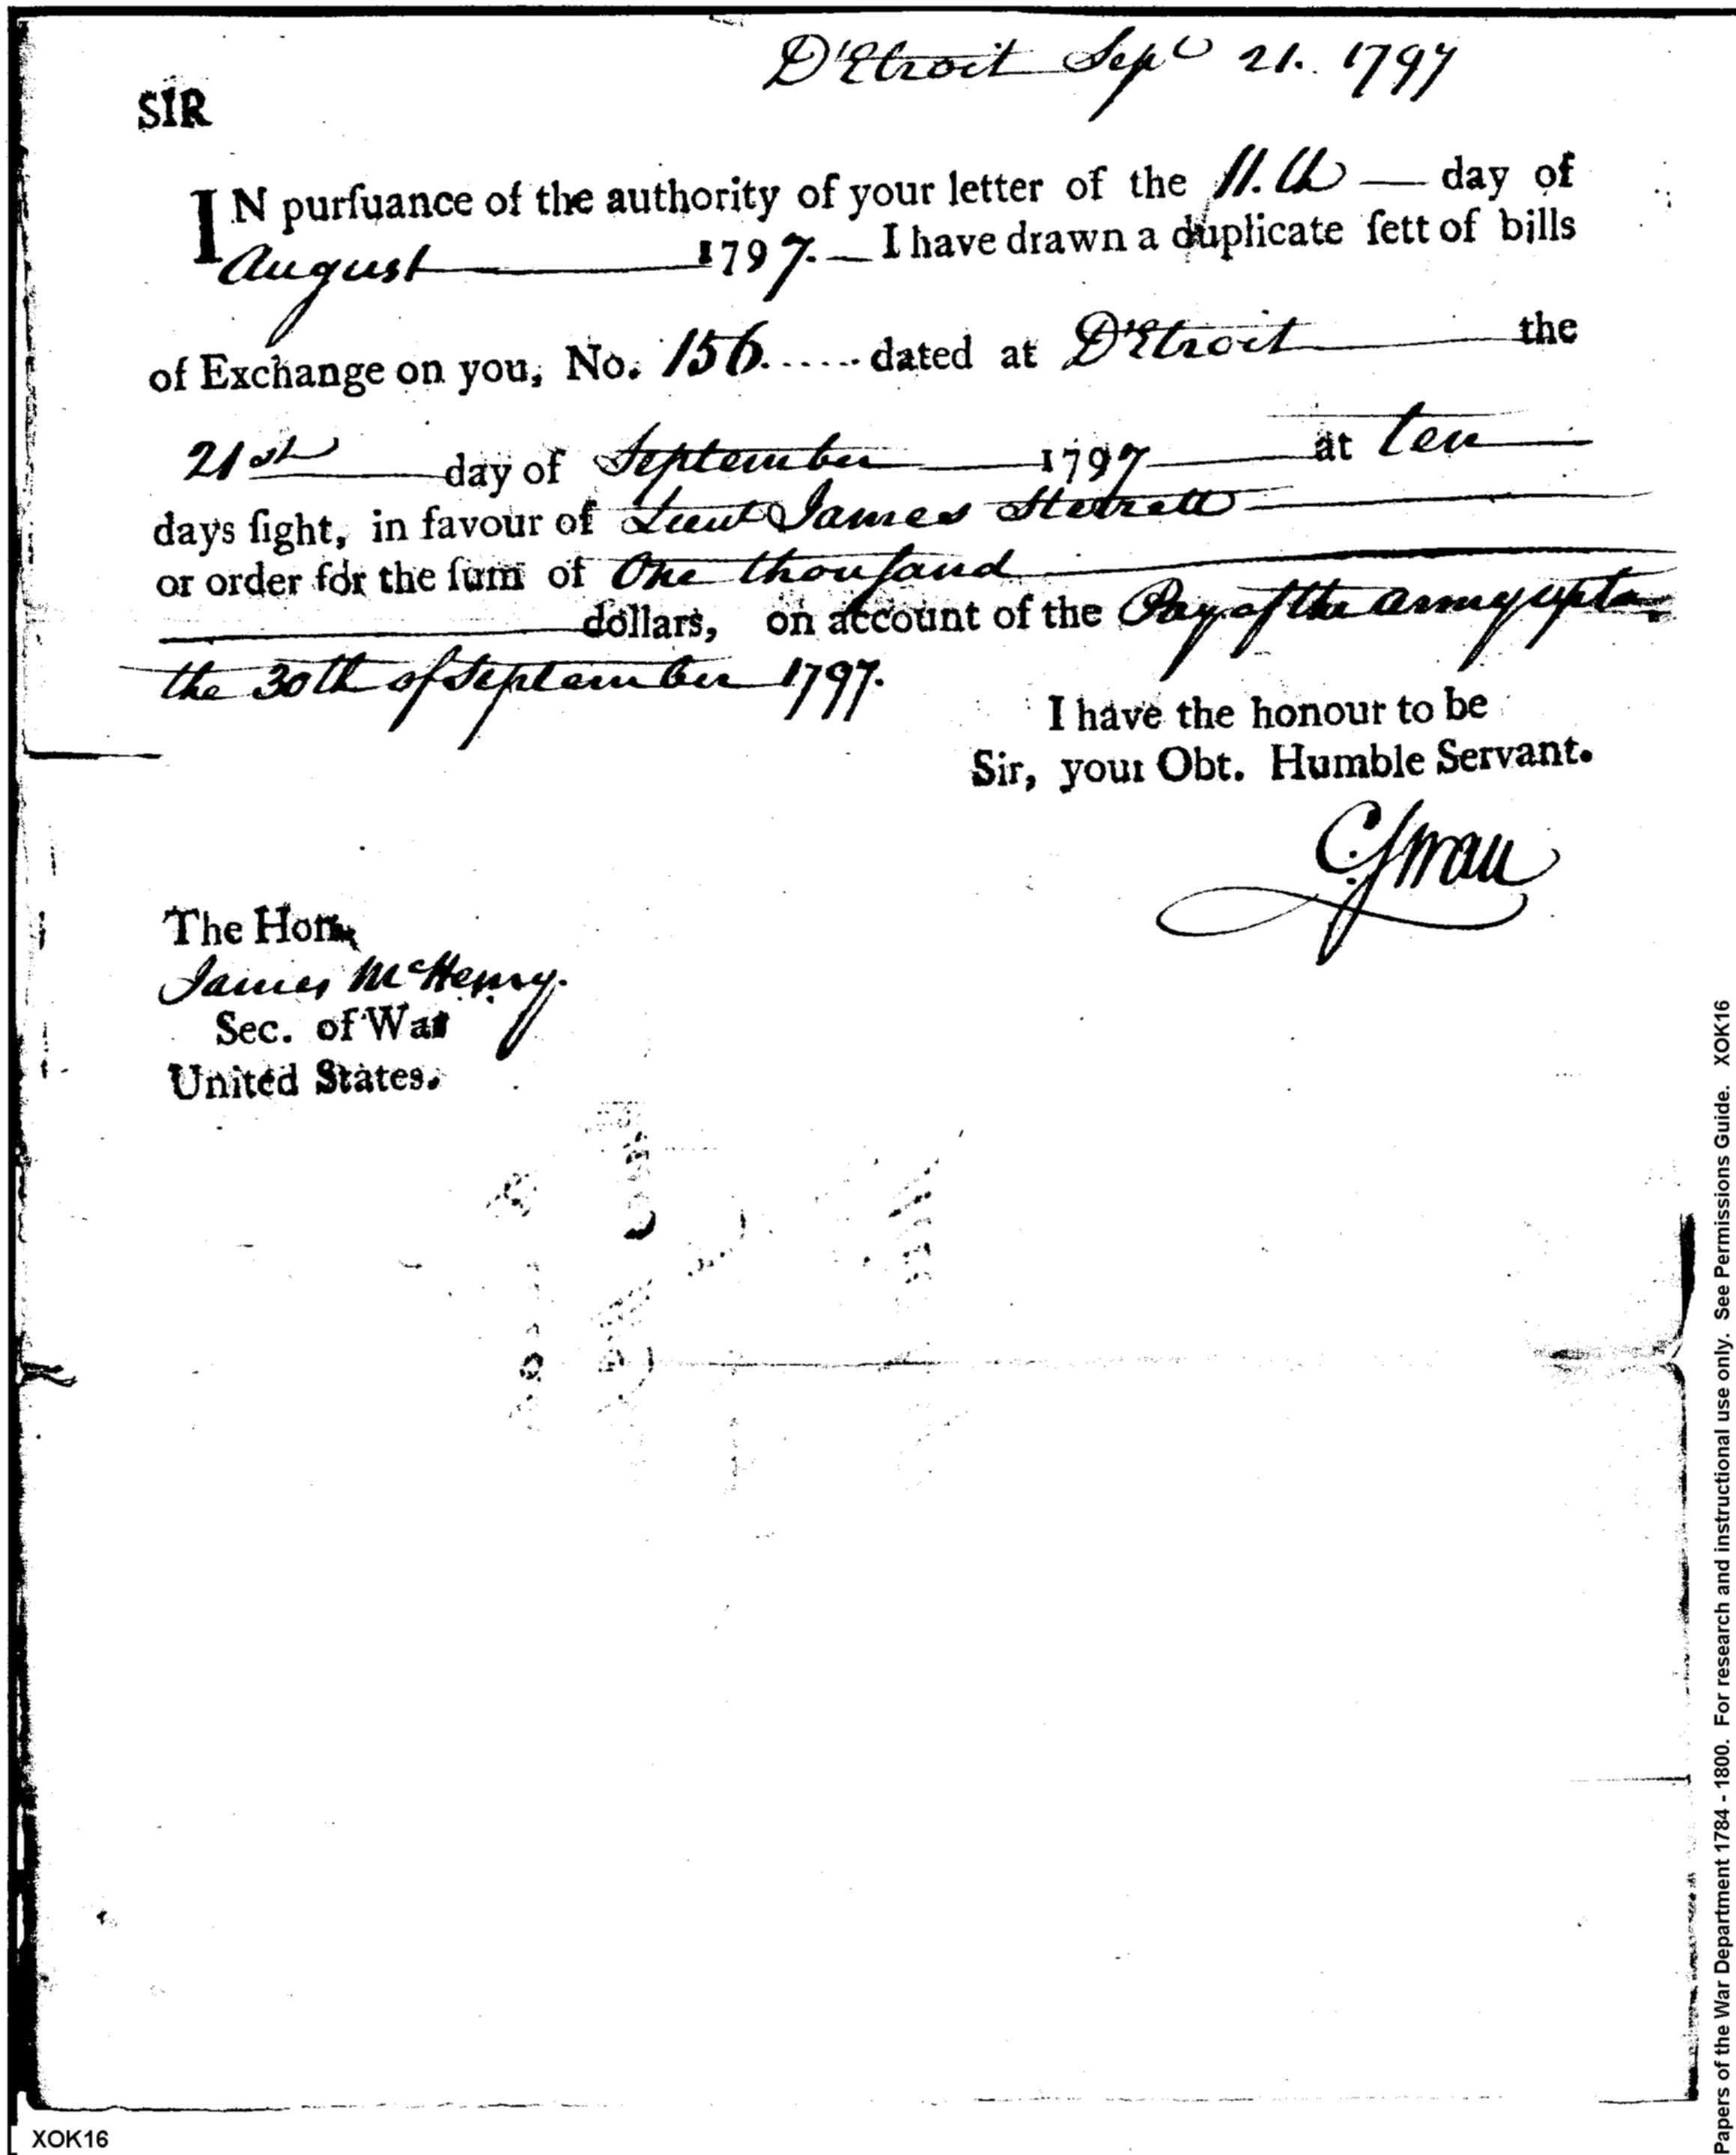 D'Etroit Sepr 21. 1797
SIR
IN purſuance of the authority of your letter of the 11.th — day of
August 1797. — I have drawn a duplicate ſett of bills
of Exchange on you, No. 156. ..... dated at D'Etroit the
21st day of September 1797 at ten
days ſight, in favour of Lieut James Sterrett
or order for the ſum of One thouſand
dollars, on account of the Pay of the army upto
the 30th of September 1797.
I have the honour to be
Sir, your Obt. Humble Servant.
C. Swan
The Hon.
James McHenry.
Sec. of War
United States.
XOK16
Papers of the War Department 1784 - 1800. For research and instructional use only. See Permissions Guide. XOK16